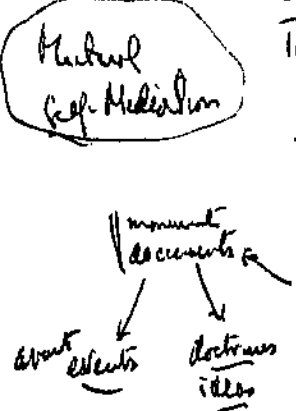 Mutual
Self-Mediation
monument
documents
events
doctrines
ideas